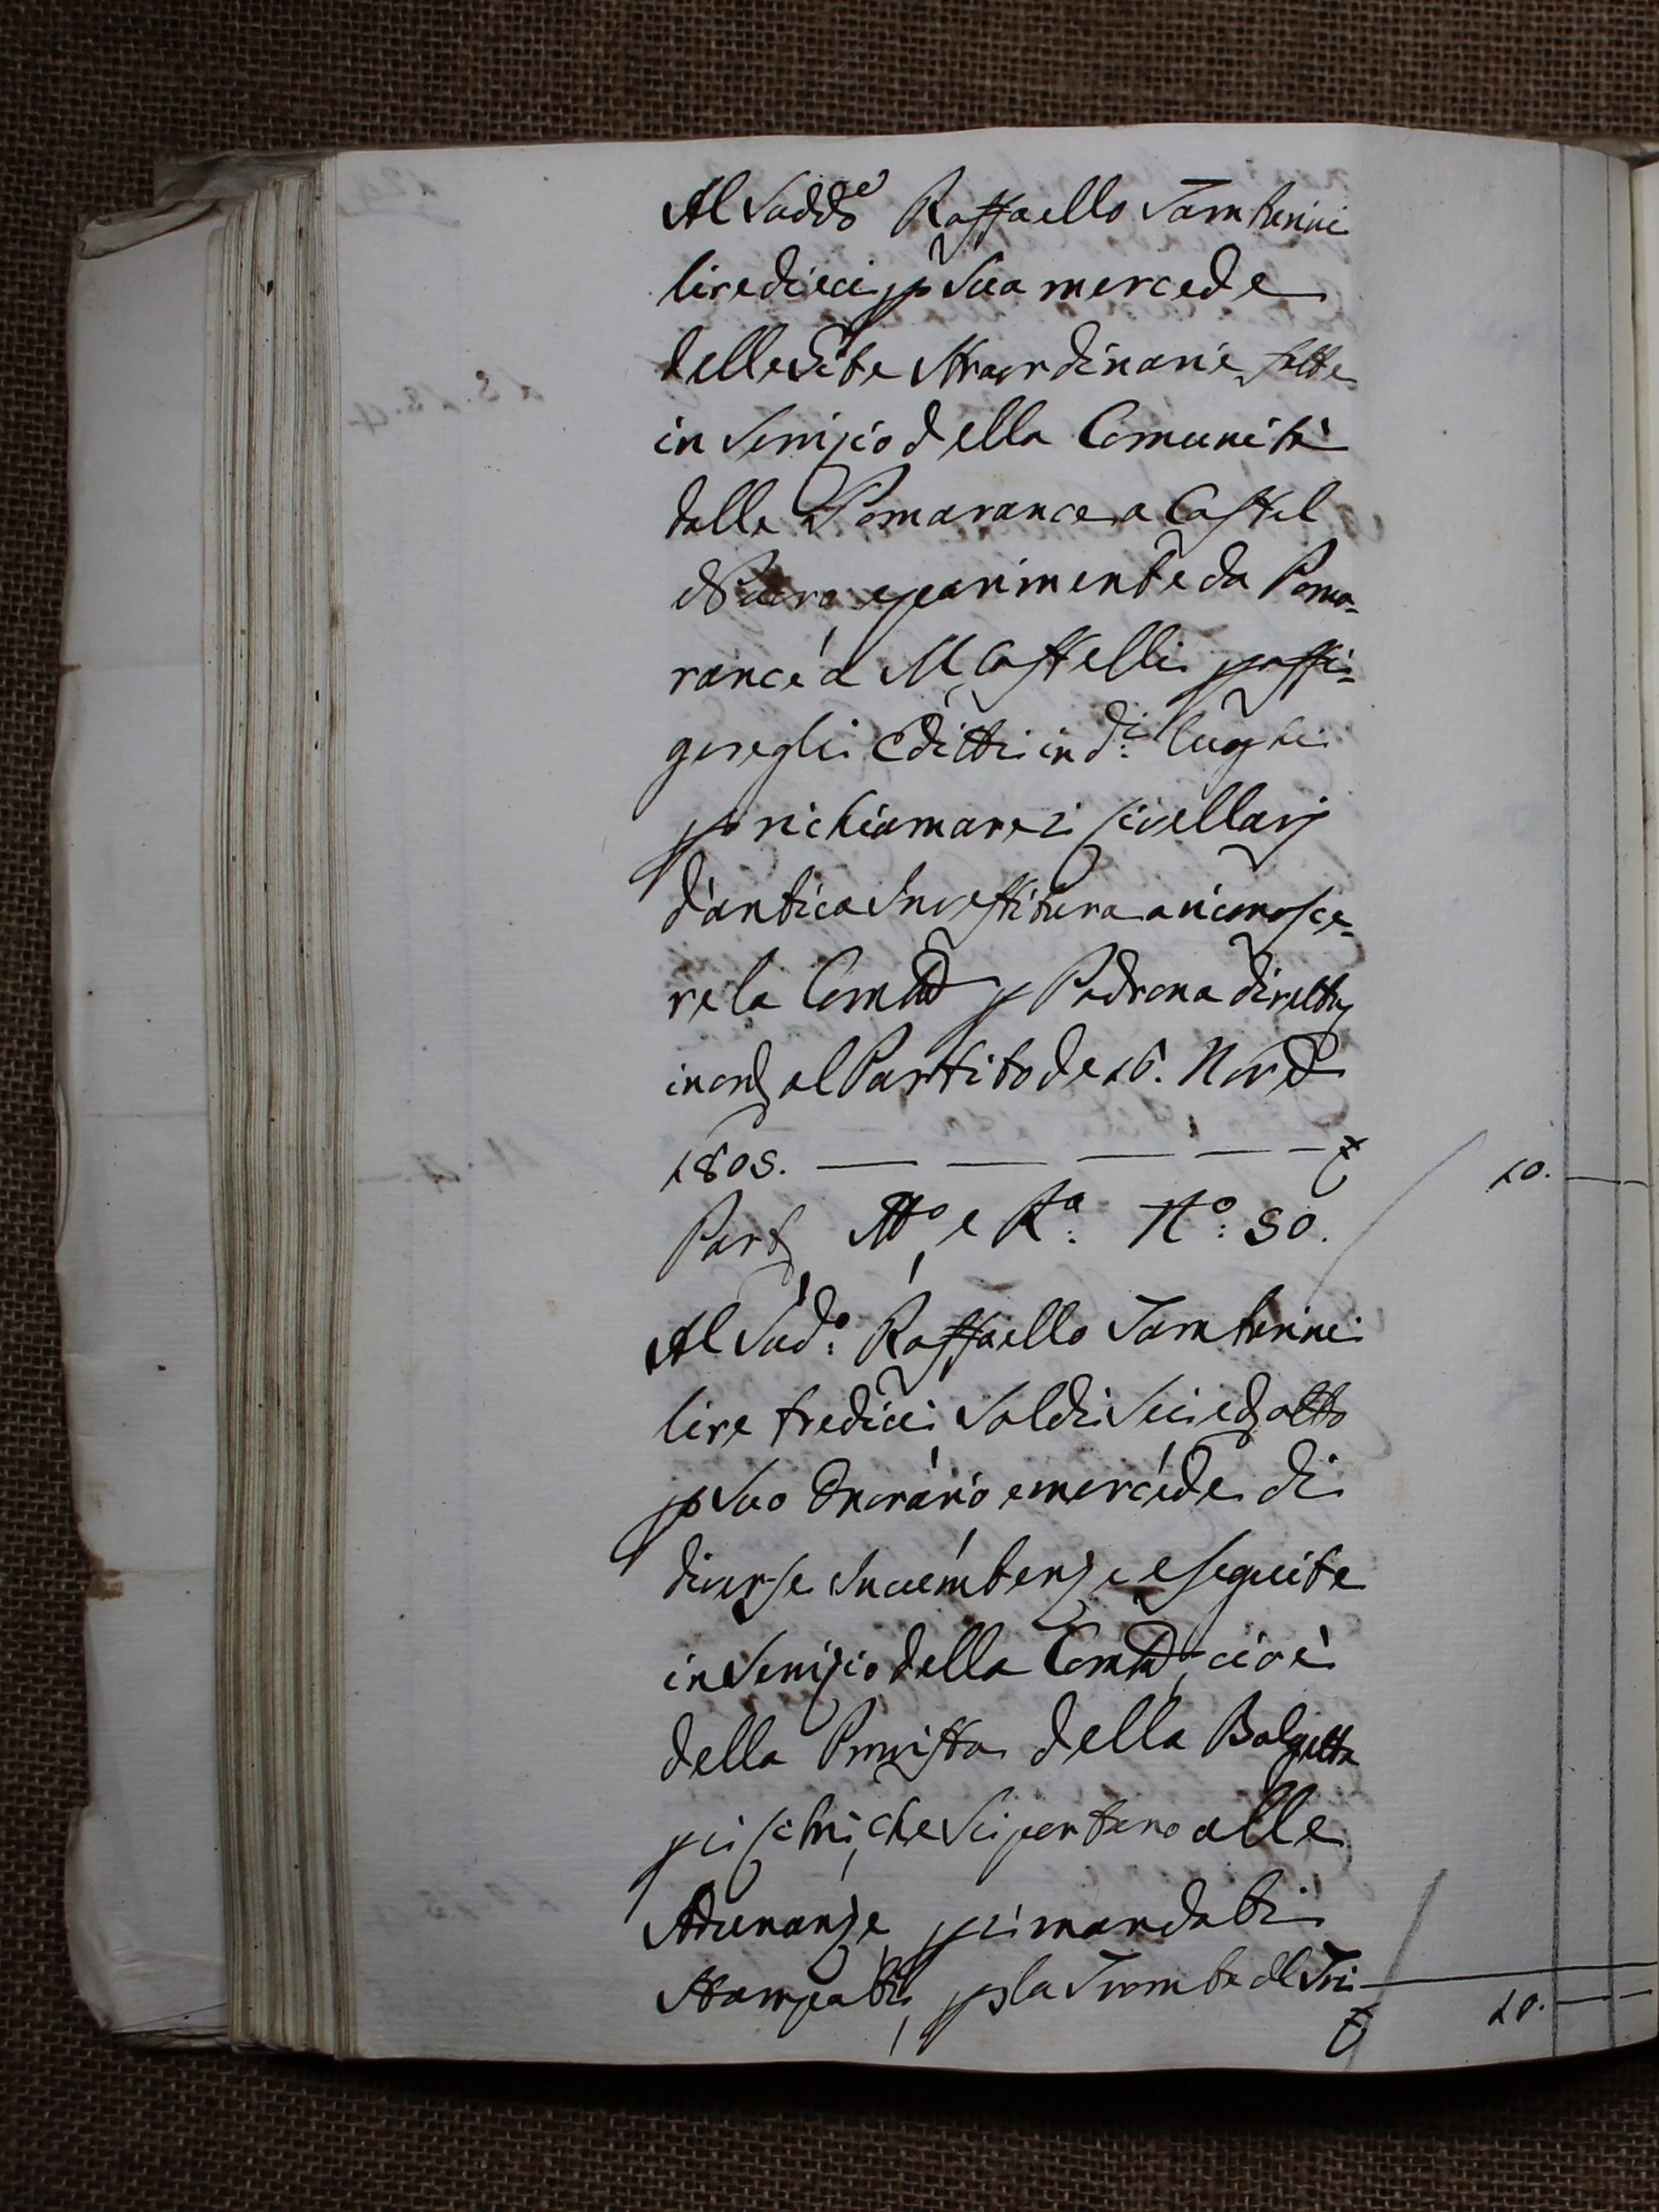 Al Sudd.o Raffaello Tamburini
lire dieci p Sua mercede
delle Gite straordinarie fatte
in Servizio della Comunità
dalle Pomarance a Castel
e parimente da Poma=
rance a M. Castelli p affi=
gere gli Editti in d.i luoghi
p richiamare i livellarj
d'antica Investitura a riconosce=
re la Com.tà p Padrona diretta
in ord al Partito de 16. Nov.e
1805. — — — — £ 10. —
Part M.o e R.a N.o: 30.
Al Sud.o Raffaello Tamburini
lire tredici Soldi Sei ed otto
p Suo Onorario e mercede di
diverse Incumbenze eseguite
in Servizio della Com.tà, cioè
della Provista della Bolgetta
p i che si portano alle
Adunanze p i mandati
stampati, p la Tromba del Tri-
£ 10. —